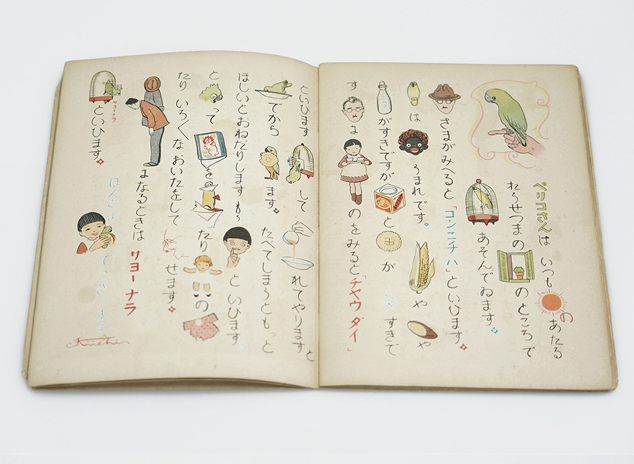 ペリコさんは いつも の あたる
おうせつまの のところで
あそんでゐます。
さまがみへると「コンニチハ」といひます。
は うまれです。 や や
がすきですが と が すきで
す のをみると「チヤウダイ」
といひます して れてやりますと
でから ます。 たべてしまうともっと
ほしいとおねだりします といひます
と って を たり の
たり いろ〱な おいたをして せます。
なるときは サヨーナラ
サヨーナラ
といひます。